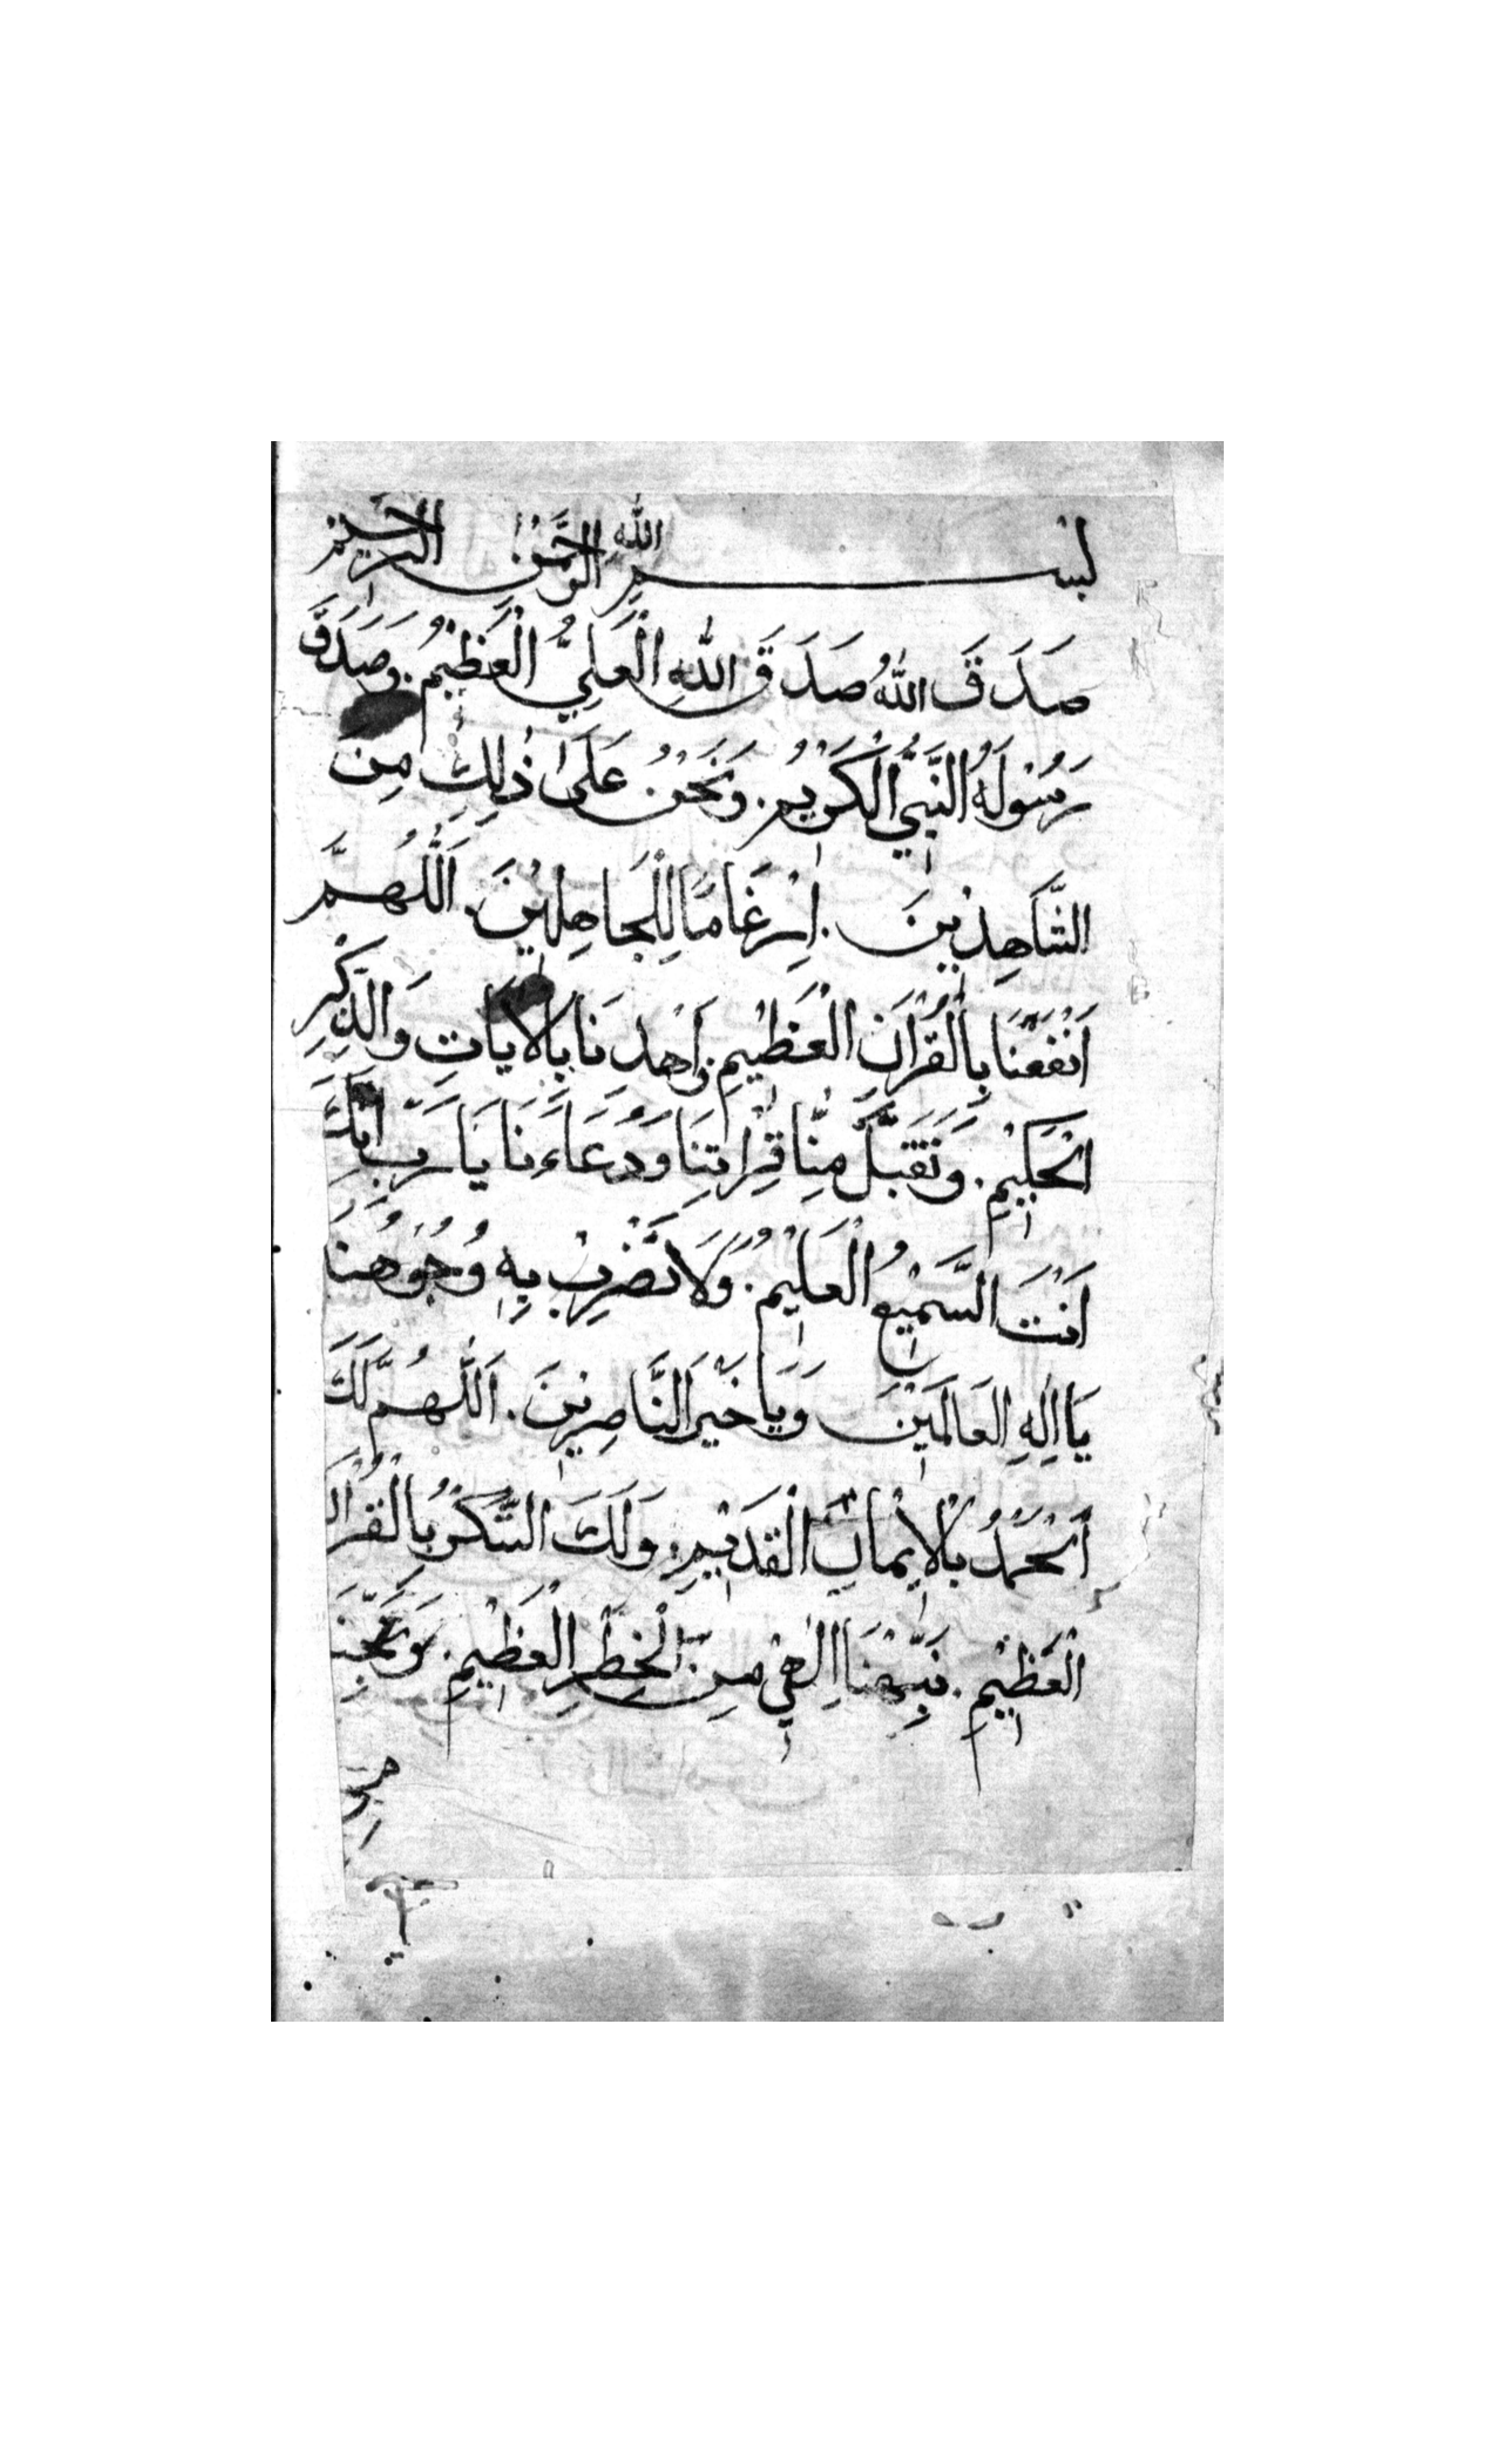 بسم الله الرحمن الرحيم
صَدَقَ اللهُ صَدَقَ اللهِ الْعَلِيُّ الْعَظِيْمُ. وَصَدَقَ
رَسُوْلَهُ النَّبِيُّ الْكَرْيمُ. وَنَحْنُ عَلَى ذٰلِكَ مِنَ
الشَّاهِدِيْنَ. اِرْغَامًا لِلْجَاهِلِيْنَ. اَللّٰهُمَّ
اَنْفَعْنَا بِالْقُرْاٰنِ الْعَظِيْمِ وَاَهْدِنَا بِالْاٰيَاتِ وَالذِّكْرِ
الْحَكِيْمِ. وَتَقَبَّلْ مِنَّا قِرْاَتِنَا وَدُعَاءَنَا يَا رَبِّ اِنَّكَ
اَنْتَ السَّمِيْعُ الْعَلِيْمُ. وَلَا تَضْرِبْ بِهِ وُجُوْهَنَا
يَا اِلٰهِ الْعَالَمِيْنَ وَيَا خَيْرَ النَّاصِرِيْنَ. اَللّٰهُمَّ لَكَ
اَلْحَمْدُ بِالْاِيْمَانِ الْقَدِيْمِ. وَلَكَ الشُّكْرُ بِالْقُرْاٰنِ
الْعَظِيْمِ. نَبِّهْنَا اِلٰهِيْ مِنَ الْخَطَرِ الْعَظِيْمِ. وَنَجِّنَا
من